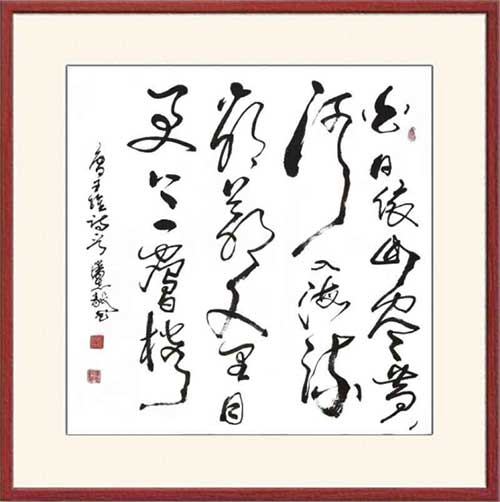 白日依山尽黄
河入海流
欲穷千里目
更上一層楼
唐王 诗 书